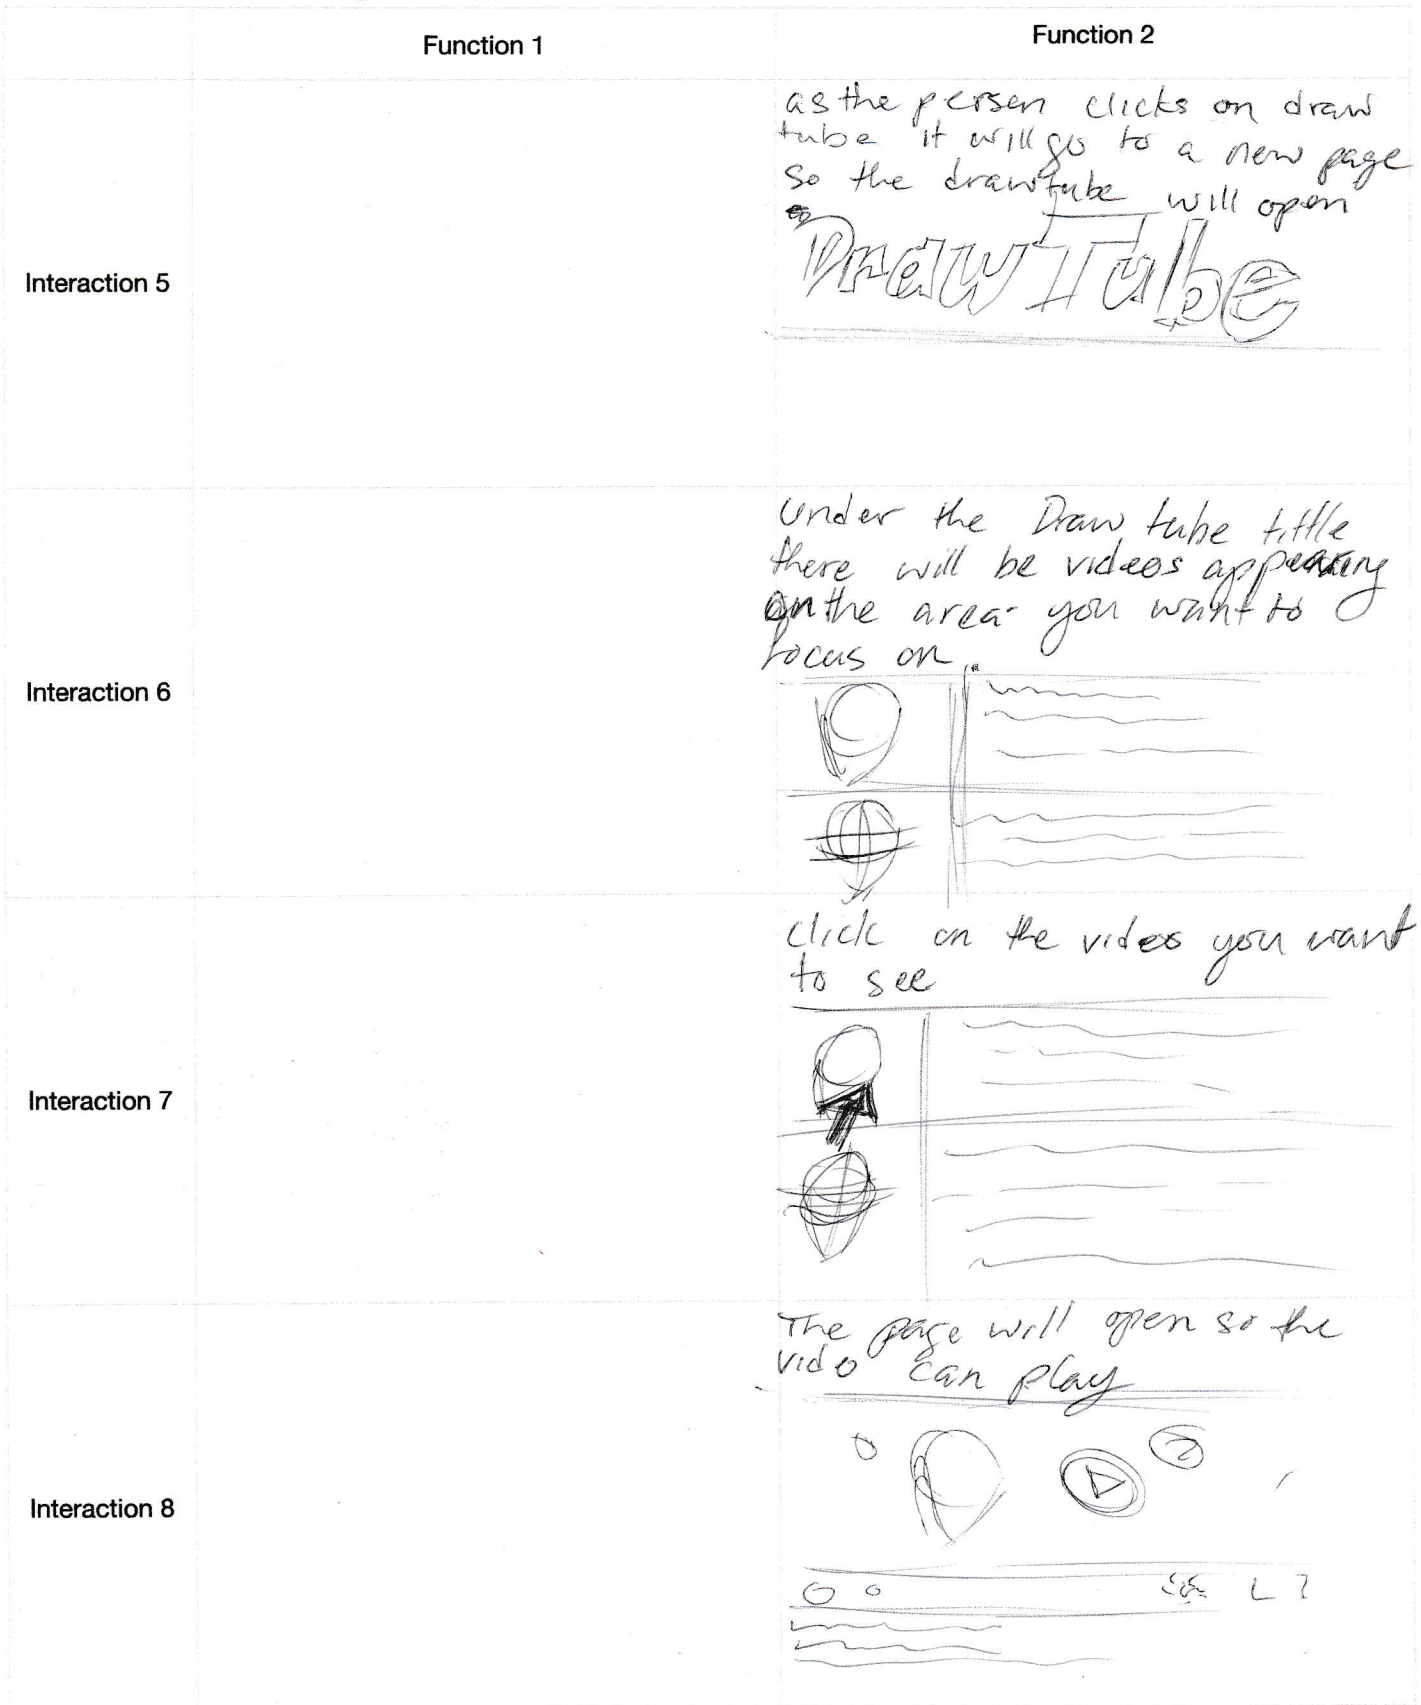 Function 1
Function 2
Interaction 5
as the person clicks on draw
tube it will go to a new page
so the drawtube will open
DrawTube
Interaction 6
Under the Draw tube tittle
there will be videos appearing
on the area you want to
focus on
Interaction 7
Click on the video you want
to see
Interaction 8
The page will open so the
vido can play